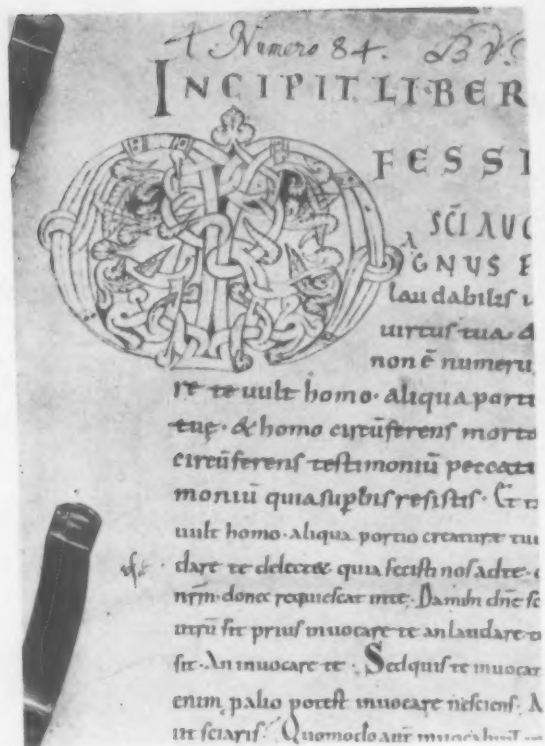 + Numero 84. B.V.
INCIPIT LIBER
FESSI
SC̄I AUG
AGNUS E
laudabilis u
uirtus tua. &
non ē numeru
re te uult homo. aliqua porti
tuę. & homo circūferens morta
circūferens testimoniū peccati
moniū quia supbis resistis. Et t
uult homo. aliqua portio creaturæ tuæ
dare te delectet quia fecisti nos ad te.
nr̄m donec requiescat in te. Da mihi dn̄e sc
utrū sit prius inuocare te an laudare t
sit. An inuocare te. Sed quis te inuocat
enim palio potest inuocare nesciens. A
ut sciaris. Quomodo aut̄ inuocabunt